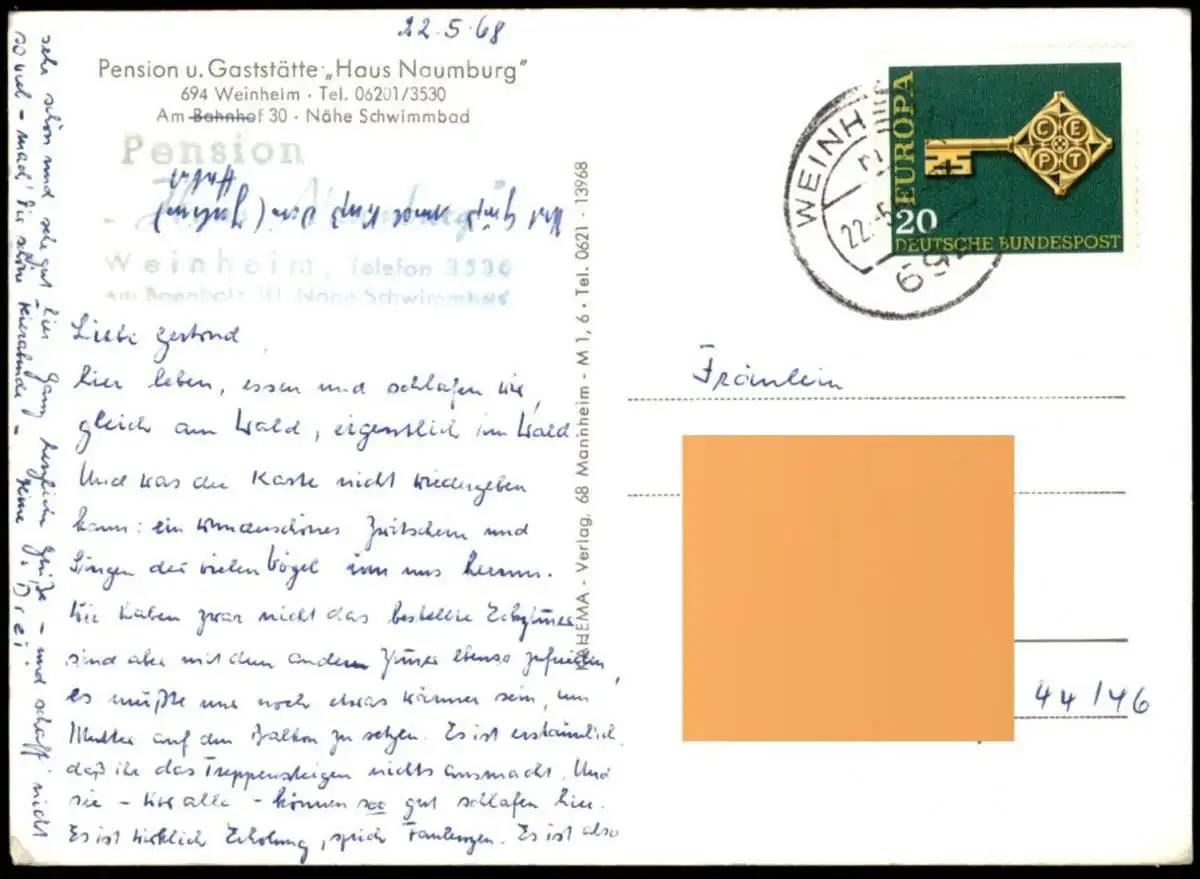 22.5.68
Pension u. Gaststätte „Haus Naumburg"
694 Weinheim · Tel. 06201/3530
Am Bahnhof 30 · Nähe Schwimmbad
Pension
Weinheim, Telefon 3530
Nähe Schwimmbad
Liebe Gertrud
hier leben, essen und schlafen wir,
gleich am Wald, eigentlich im Wald.
Und was die Karte nicht wiedergeben
kann: ein wunderschönes Zwitschern und
Singen der vielen Vögel um uns herum.
Wir haben zwar nicht das bestellte Eckzimmer
sind aber mit dem anderen Zimmer ebenso zufrieden,
es müßte nur noch etwas wärmer sein, um
Mutter auf den Balkon zu setzen. Es ist erstaunlich,
daß ihr das Treppensteigen nichts ausmacht. Und
sie - wir alle - können soo gut schlafen hier.
Es ist wirklich Erholung, sprich Faulenzen. Es ist also
sehr schön und sehr gut hier. Ganz herzliche Grüße - und schaff' nicht
so viel - mach' Dir schöne Feierabende - Deine Drei.
HEMA - Verlag, 68 Mannheim - M 1, 6 · Tel. 0621 - 13968
EUROPA
CEPT
20
DEUTSCHE BUNDESPOST
WEINH
22.5
694
Fräulein
44/46